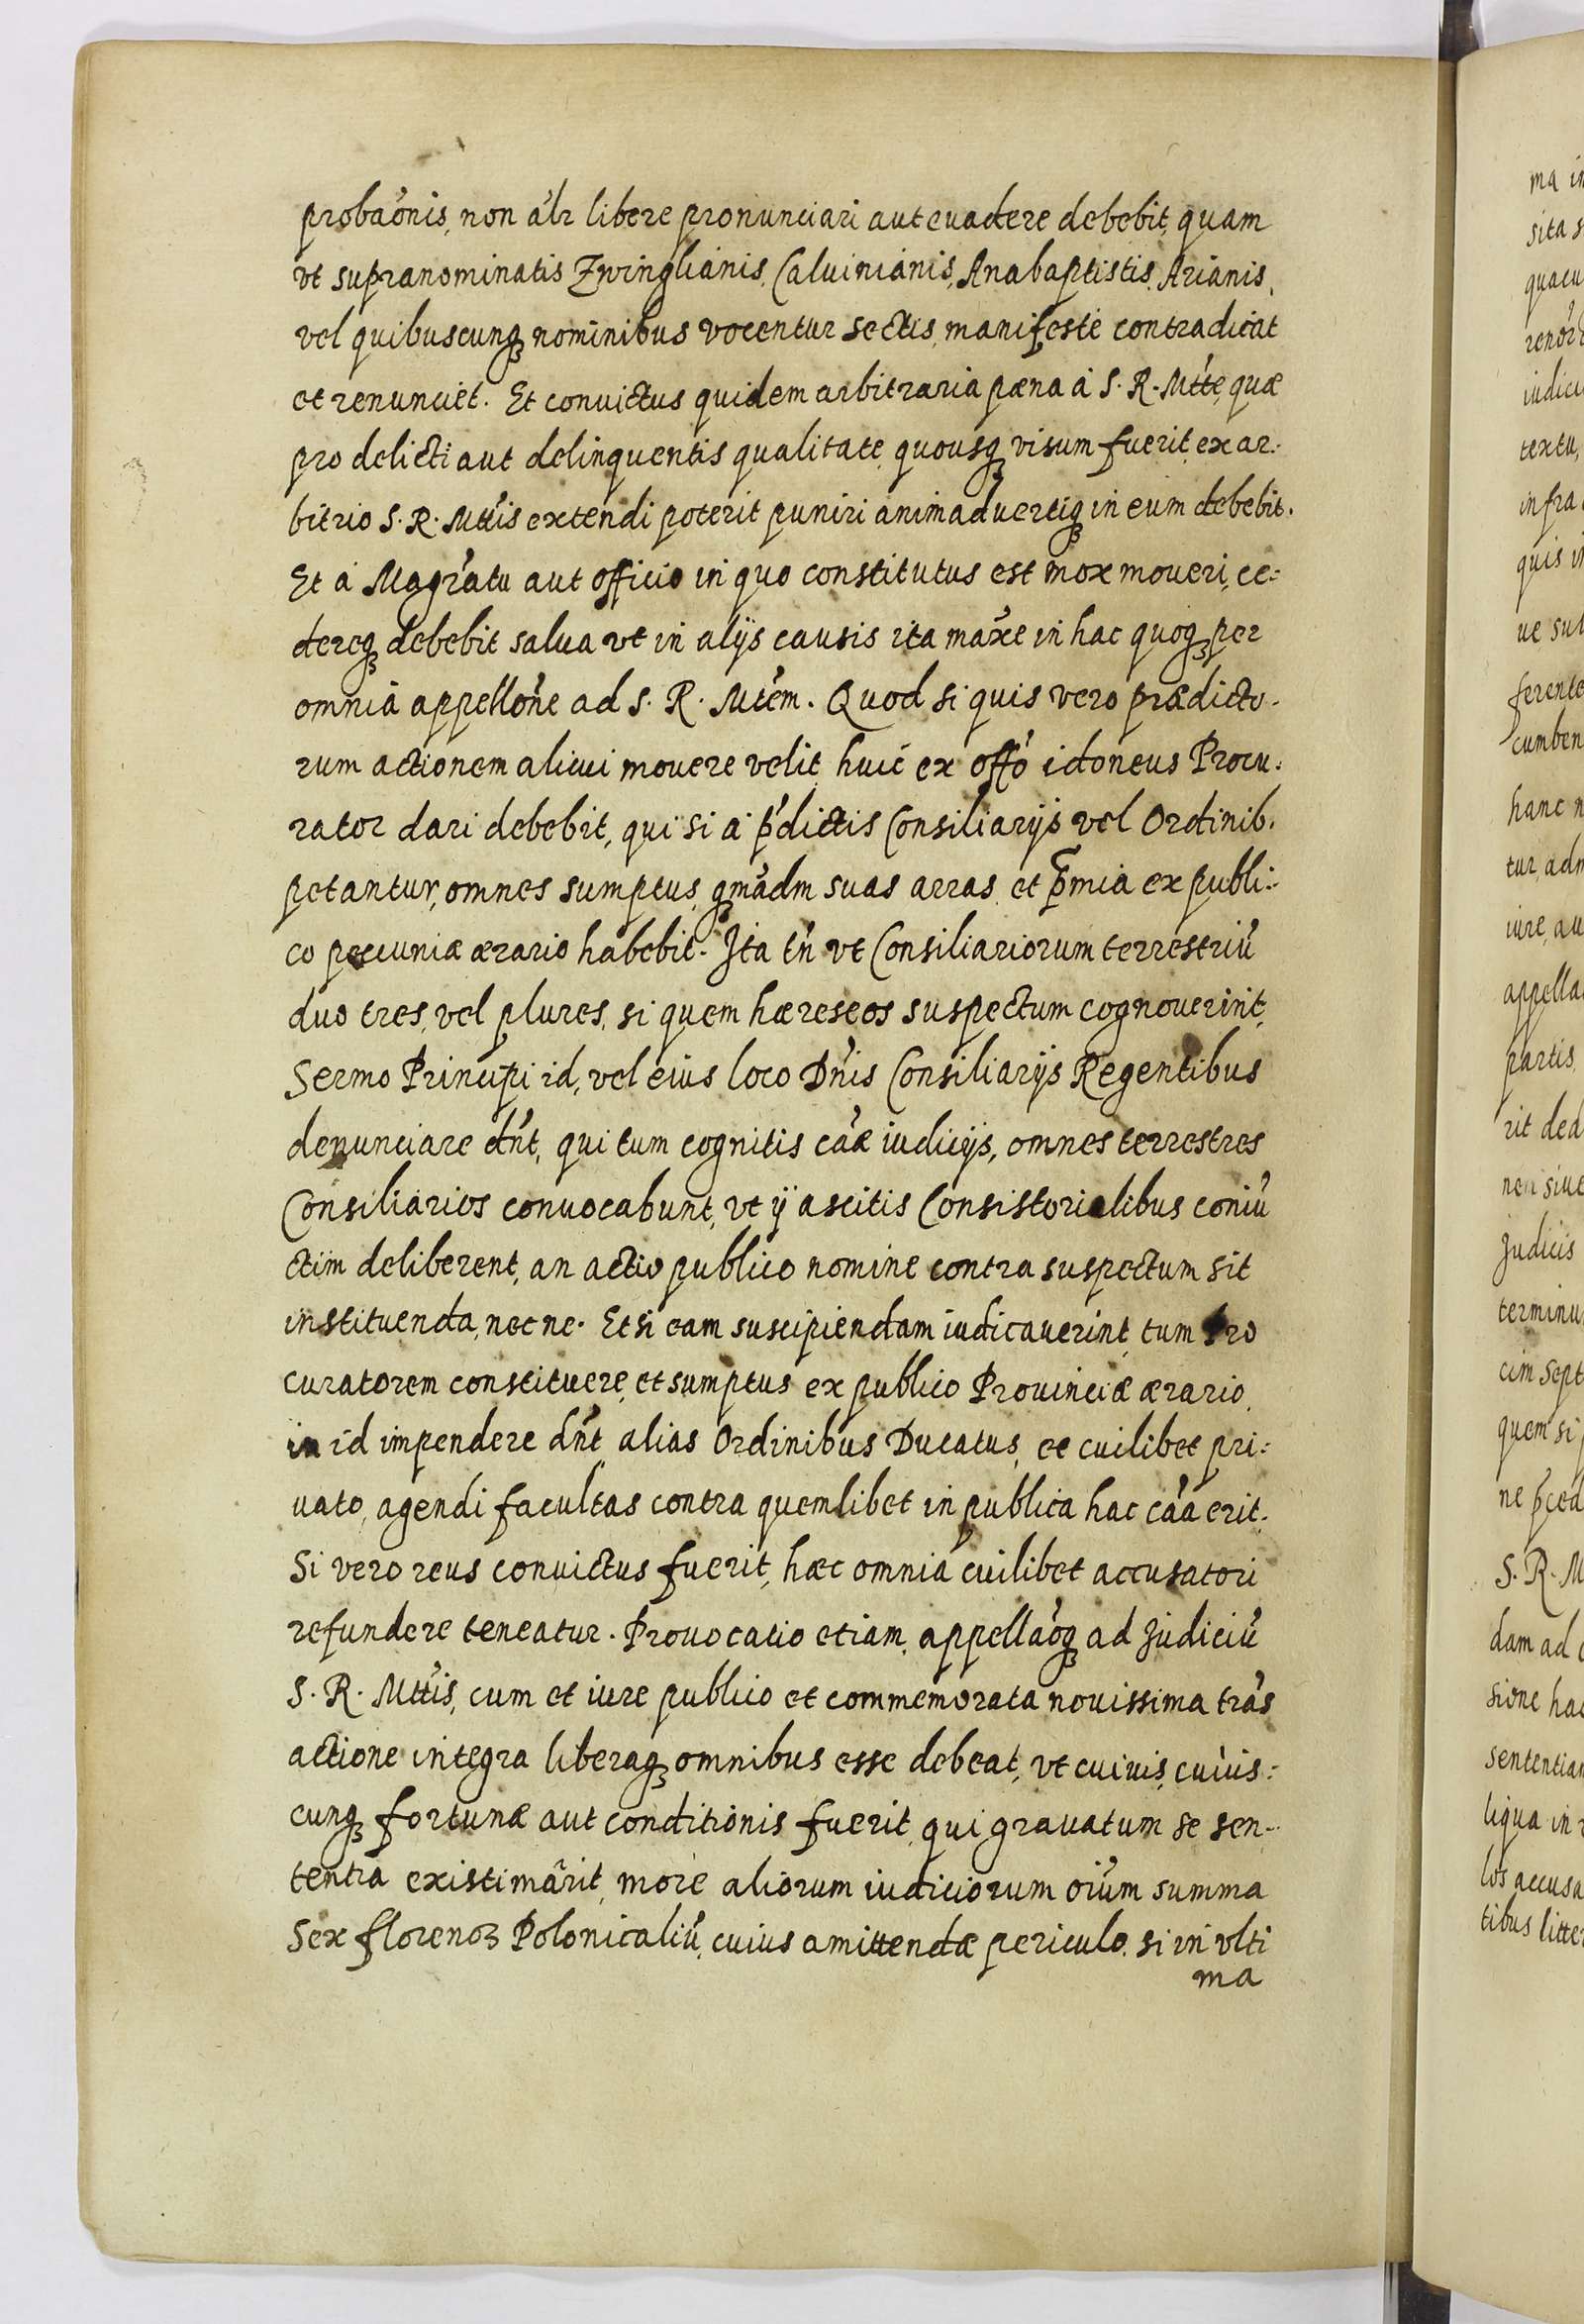 probaõnis, non a'lr libere pronunciari aut euadere debebit, quam
vt supranominatis Zwinglianis, Caluinianis, Anabaptistis, Arianis,
vel quibuscunqꝫ nominibus vocentur sectis, manifestè contradicat
et renunciet. Et conuictus quidem arbitraria pæna à S. R. Mtte, quæ
pro delicti aut delinquentis qualitate, quousqꝫ visum fuerit, ex ar-
bitrio S. R. Mttis extendi poterit puniri animaduertiqꝫ in eum debebit.
Et à Magr̃atu aut officio in quo constitutus est mox moueri, ce-
dereqꝫ debebit salua vt in alijs causis ita max̃e in hac quoqꝫ per
omnia appellõne ad S. R. Mtẽm. Quod si quis vero prædicto-
rum actionem alicui mouere velit, huic ex offõ idoneus Procu-
rator dari debebit, qui si à p̃dictis Consiliarijs vel Ordinib.
petantur, omnes sumptus, qꝫmãdm suas arras, et p̃mia ex publi-
co pecuniæ ærario habebit. Ita tñ vt Consiliariorum terrestriũ
duo tres, vel plures, si quem hæreseos suspectum cognouerint,
Sermo Principi id, vel eius loco Dñis Consiliarijs Regentibus
denunciare dñt, qui tum cognitis cãæ iudicijs, omnes terrestres
Consiliarios conuocabunt, vt ij ascitis Consistorialibus coniũ
ctim deliberent, an actio publico nomine contra suspectum sit
instituenda, nec ne. Et si eam suscipiendam iudicauerint, tum Pro
curatorem constituere, et sumptus ex publico Prouinciæ ærario,
in id impendere dñt, alias Ordinibus Ducatus, et cuilibet pri-
uato, agendi facultas contra quemlibet in publica hac cãa erit.
Si vero reus conuictus fuerit, hæc omnia cuilibet accusatori
refundere teneatur. Prouocatio etiam, appellaõqꝫ ad Judiciũ
S. R. Mttis, cum et iure publico et commemorata nouissima trãs
actione integra liberaqꝫ omnibus esse debeat, vt cuiuis, cuius-
cunqꝫ fortunæ aut conditionis fuerit, qui grauatum se sen-
tentia existimârit, more aliorum iudiciorum oĩum summa
Sex florenoꝝ Polonicaliũ, cuius amittendæ periculo, si in vlti
ma
ma in
sita s
quacu
iudici
textu,
infra
quis in
ue sul
ferente
cumben
hanc n
tur, adm
iure, au
appella
partis,
rit ded
Judicis
terminu
cim Sept
quem si
S. R. M
dam ad
sione hac
sententiam
liqua in
los accusa
tibus litter